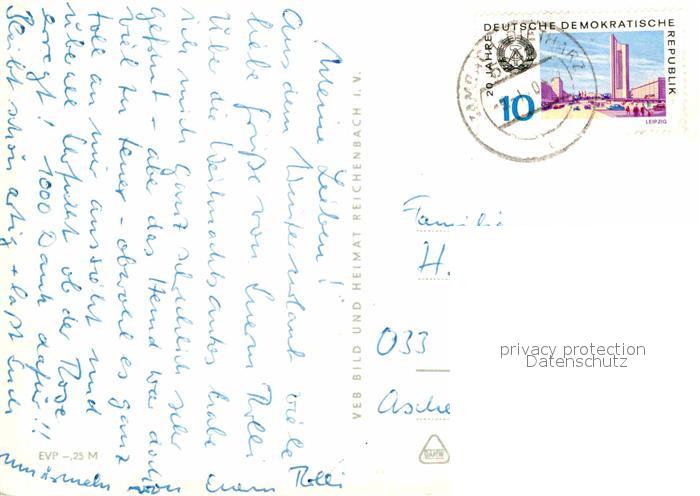 Meine Lieben!
Aus dem Winterurlaub viele
liebe Grüße von Euerm Rolli
Über die Weihnachtsautos habe
ich mich ganz schrecklich sehr
gefreut - aber das Hemd war doch
viel zu teuer - obwohl es ganz
toll an mir aussieht und
überall Ehrfurcht ob der Mode
erregt! 1000 Dank dafür!!
Bleibt schön artig + laßt Euch
umärmeln von Euerm Rolli
VEB BILD UND HEIMAT REICHENBACH I. V.
EVP -,25 M
20 JAHRE DEUTSCHE DEMOKRATISCHE REPUBLIK
10
LEIPZIG
Familie
H.
033
Asche
privacy protection
Datenschutz